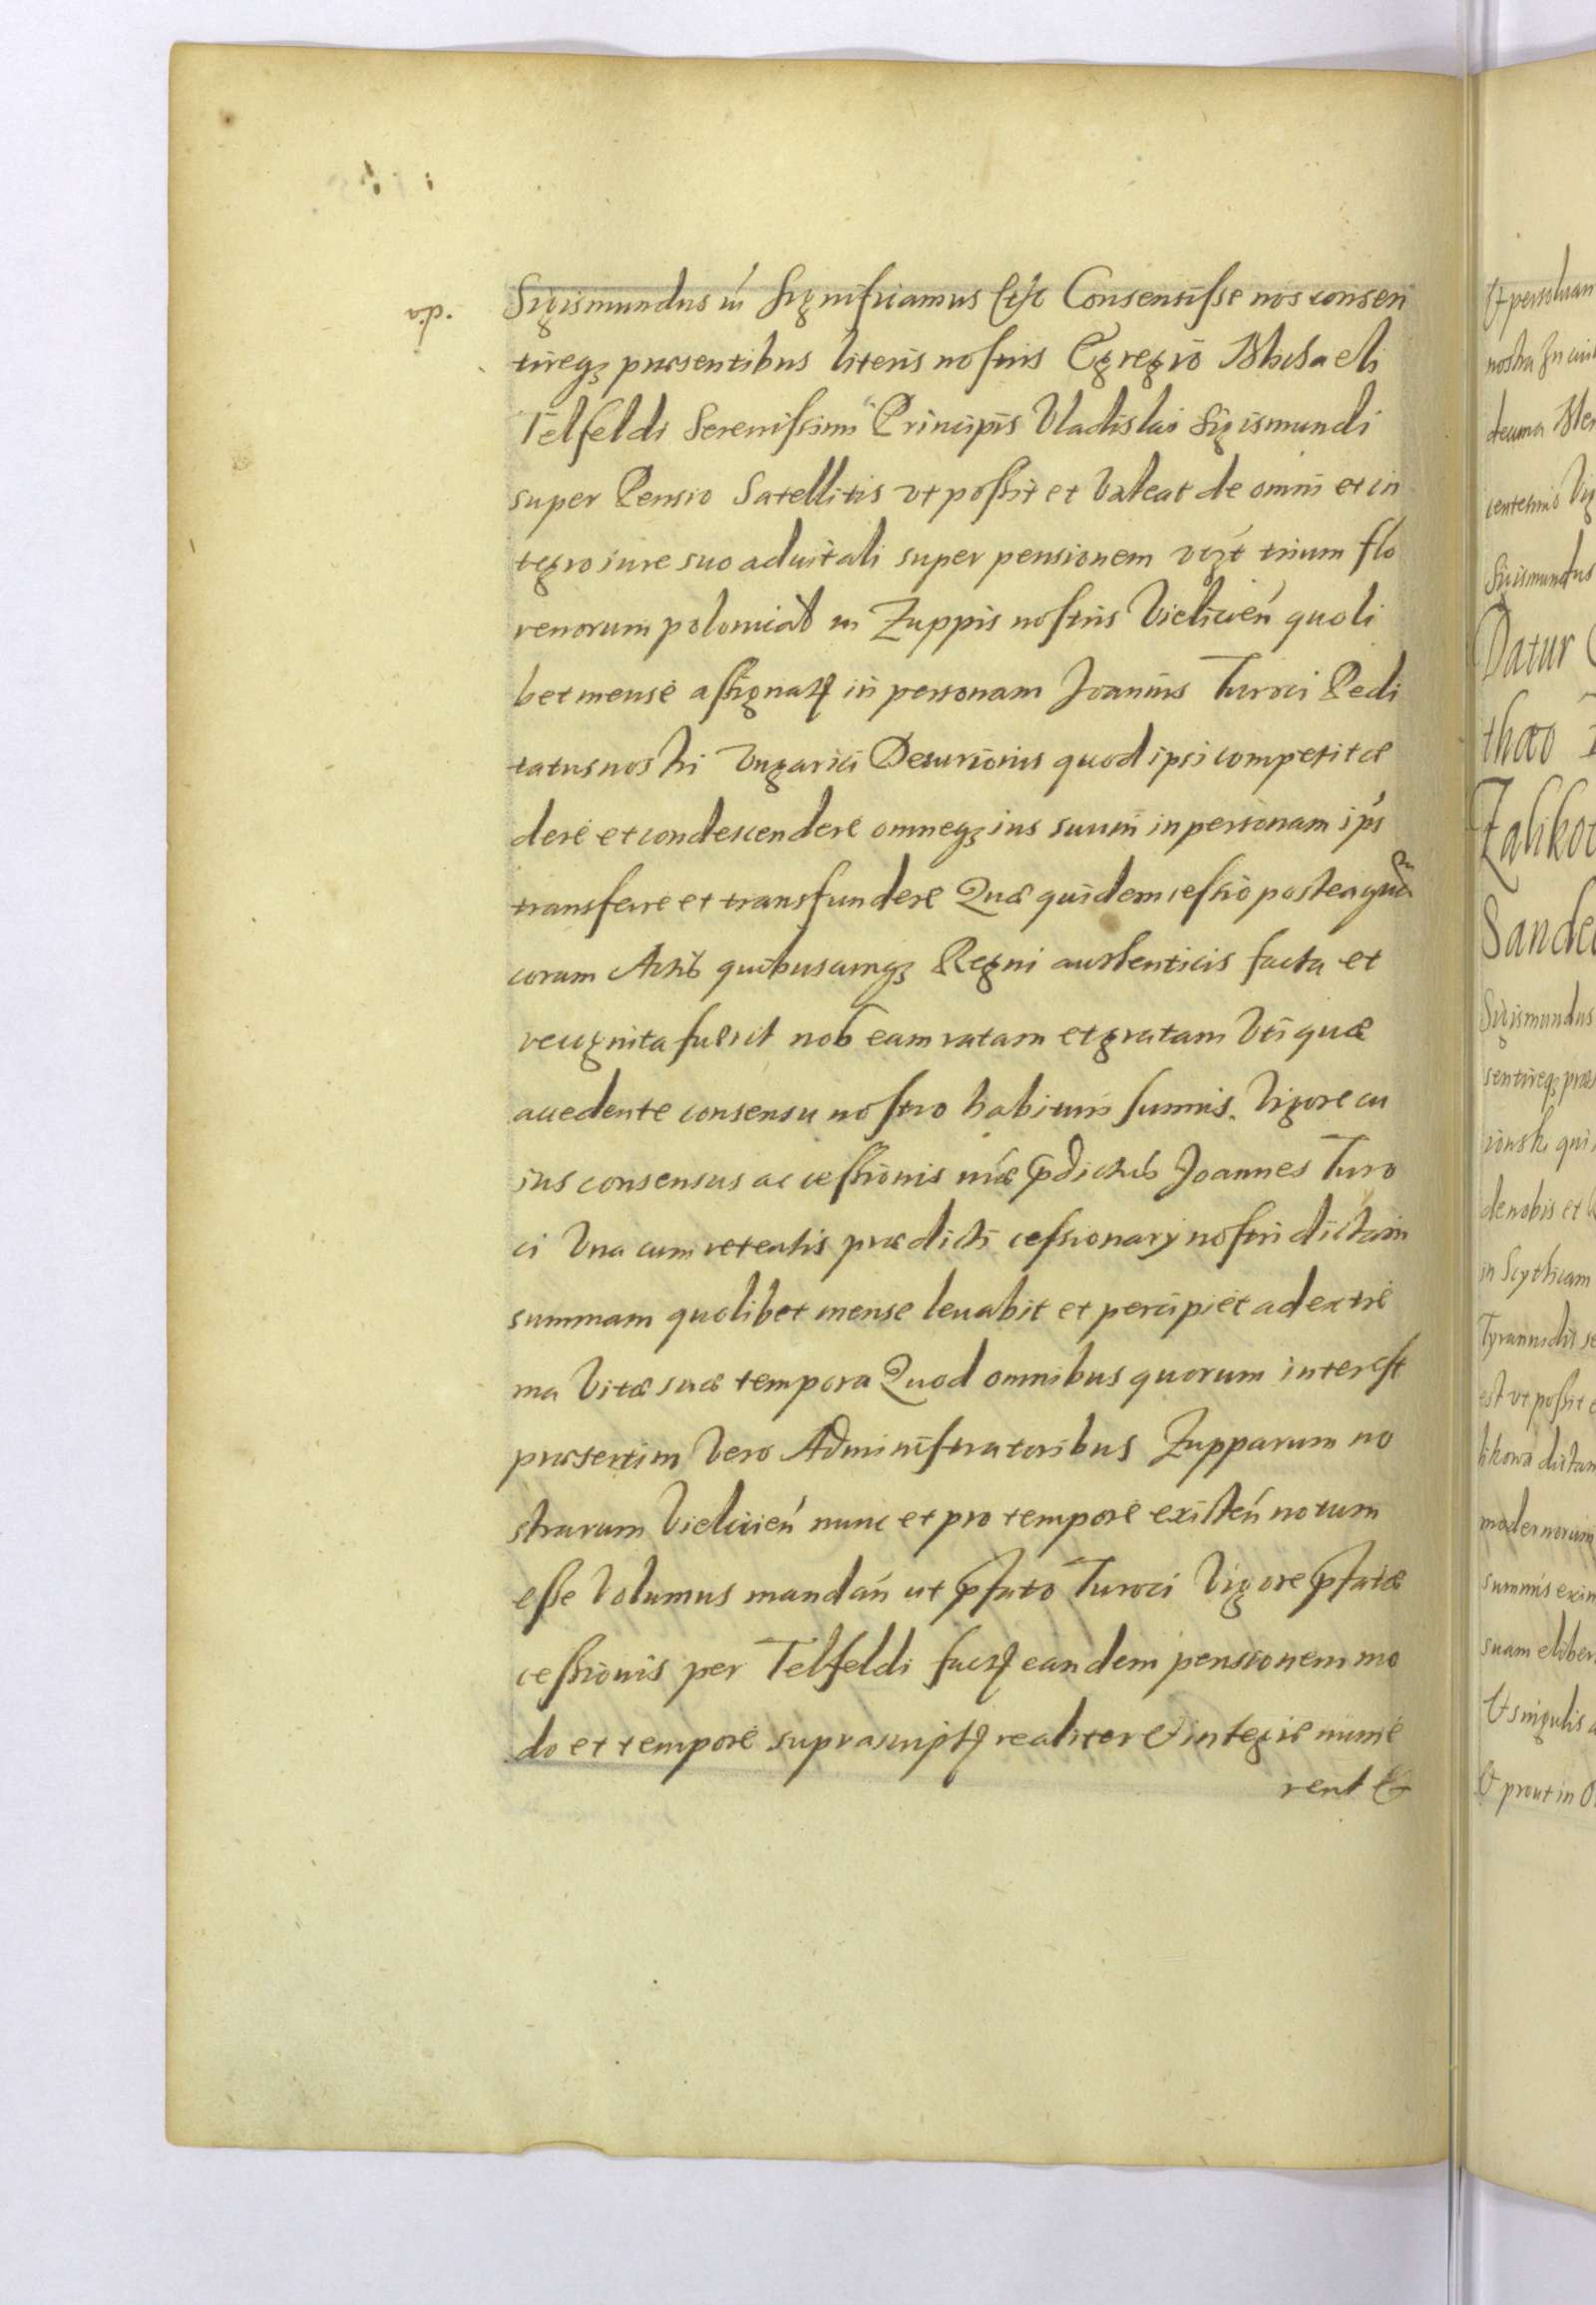 Sigismundus III Significamus Etc Consensisse nos consen
tireq3 præsentibus literis nostris Egregio Michaeli
Telfeldi Serenissimi Principis Vladislai Sigismundi
super Pensio Satellitis vt possit et Valeat de omni et in
tegro iure suo aduitali super pensionem vigt trium flo
renorum polonical in Zuppis nostris Vielicień quoli
bet mense assignatę in personam Joannis Turoci Pedi
tatus nostri Vngarici Decurionis quod ipsi competit ce
dere et condescendere omneq3 ius suum in personam ips
transferre et transfundere Quæ quidem cessio posteaquā
coram Actis quibuscunq3 Regni authenticis facta et
recognita fuerit nob eam ratam et gratam Vti quæ
accedente consensu nostro habituri sumus. Vigore cu
ius consensus ac cessionis præd pdictus Joannes Turo
ci Vna cum prædicti cessionarij nostri dictam
summam quolibet mense leuabit et percipiet ad extre
ma Vitæ suæ tempora Quod omnibus quorum interest
præsertim Vero Administratoribus Zupparum no
strarum Vielicień nunc et pro tempore existeń notum
esse Volumus mandań ut pfato Turoci Vigore pfatæ
cessionis per Telfeldi factę eandem pensionem mo
do et tempore suprascriptę realiter et integre nume
rent &
Datur
Zalikow
Sigismundus
in Scythicam
est vt possit
likowa dictam
modernorum
Et singulis
Et prout in